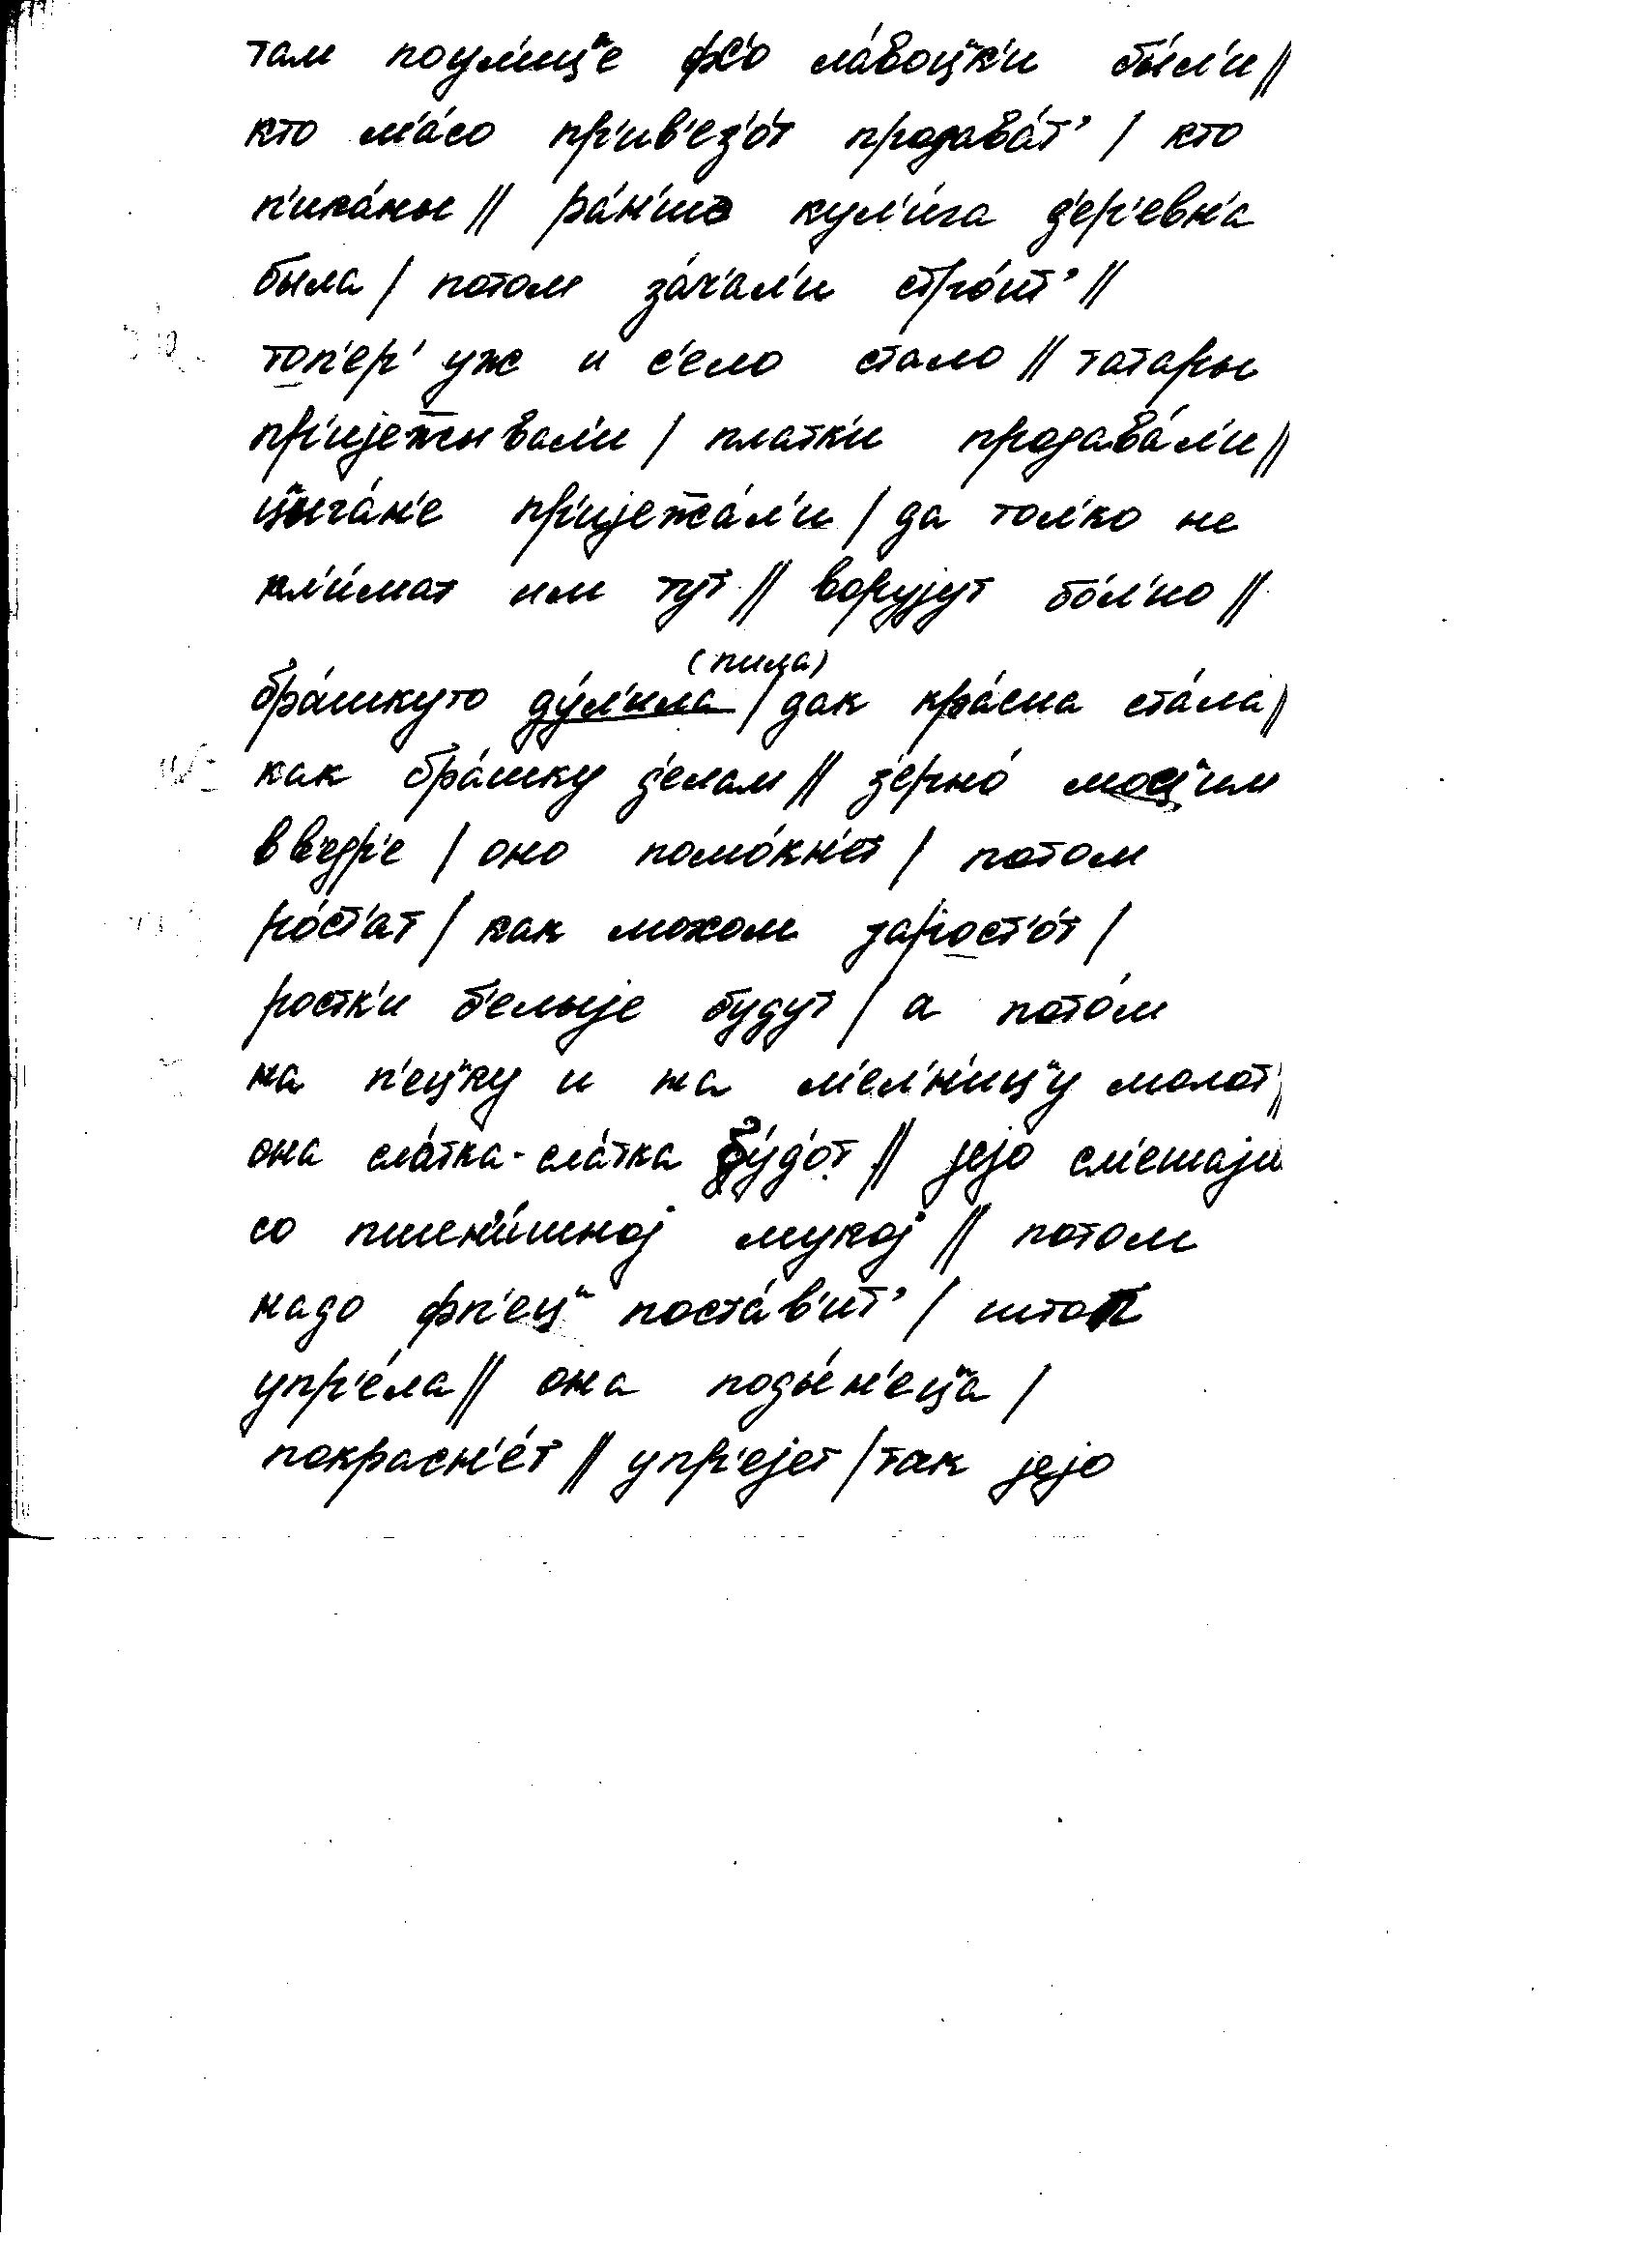 там поул'иц"е фс'о ла́воц"к'и бы́л'и //
кто м'а́со пр'ив'ез'о́т продава́т' / кто
п'ика́ны // ра́н'шэ кул'и́га д'ер'евн'а
была / потом за́ч'ал'и стро́ит' //
топ'ер' уж и с'ело стало // татары
пр'ијежывал'и / платк'и продава́л'и //
цыга́н'е пр'ијежа́л'и / да тол'ко не
кл'и́мат им тут // ворујут бо́л'но //
(пила)
бра́шкуто ду́л'ила / дак кра́сна ста́ла //
как бра́шку д'елам // з'ерно́ моц"им
в в'едр'е / оно помо́кн'ет / потом
ро́ст'ат / как мохом зарост'о́т /
ростк'и б'елыје будут / а пото́м
на п'ец"ку и на м'ел'н'иц"у молот' //
она сла́тка-сла́тка бу́д'от // јејо см'ешају
со пшен'и́шној мукој // потом
надо фп'ец" поста́в'ит' / штоп
упр'е́ла // она поды́н'еца /
покрасн'е́т // упр'ејет / так јејо